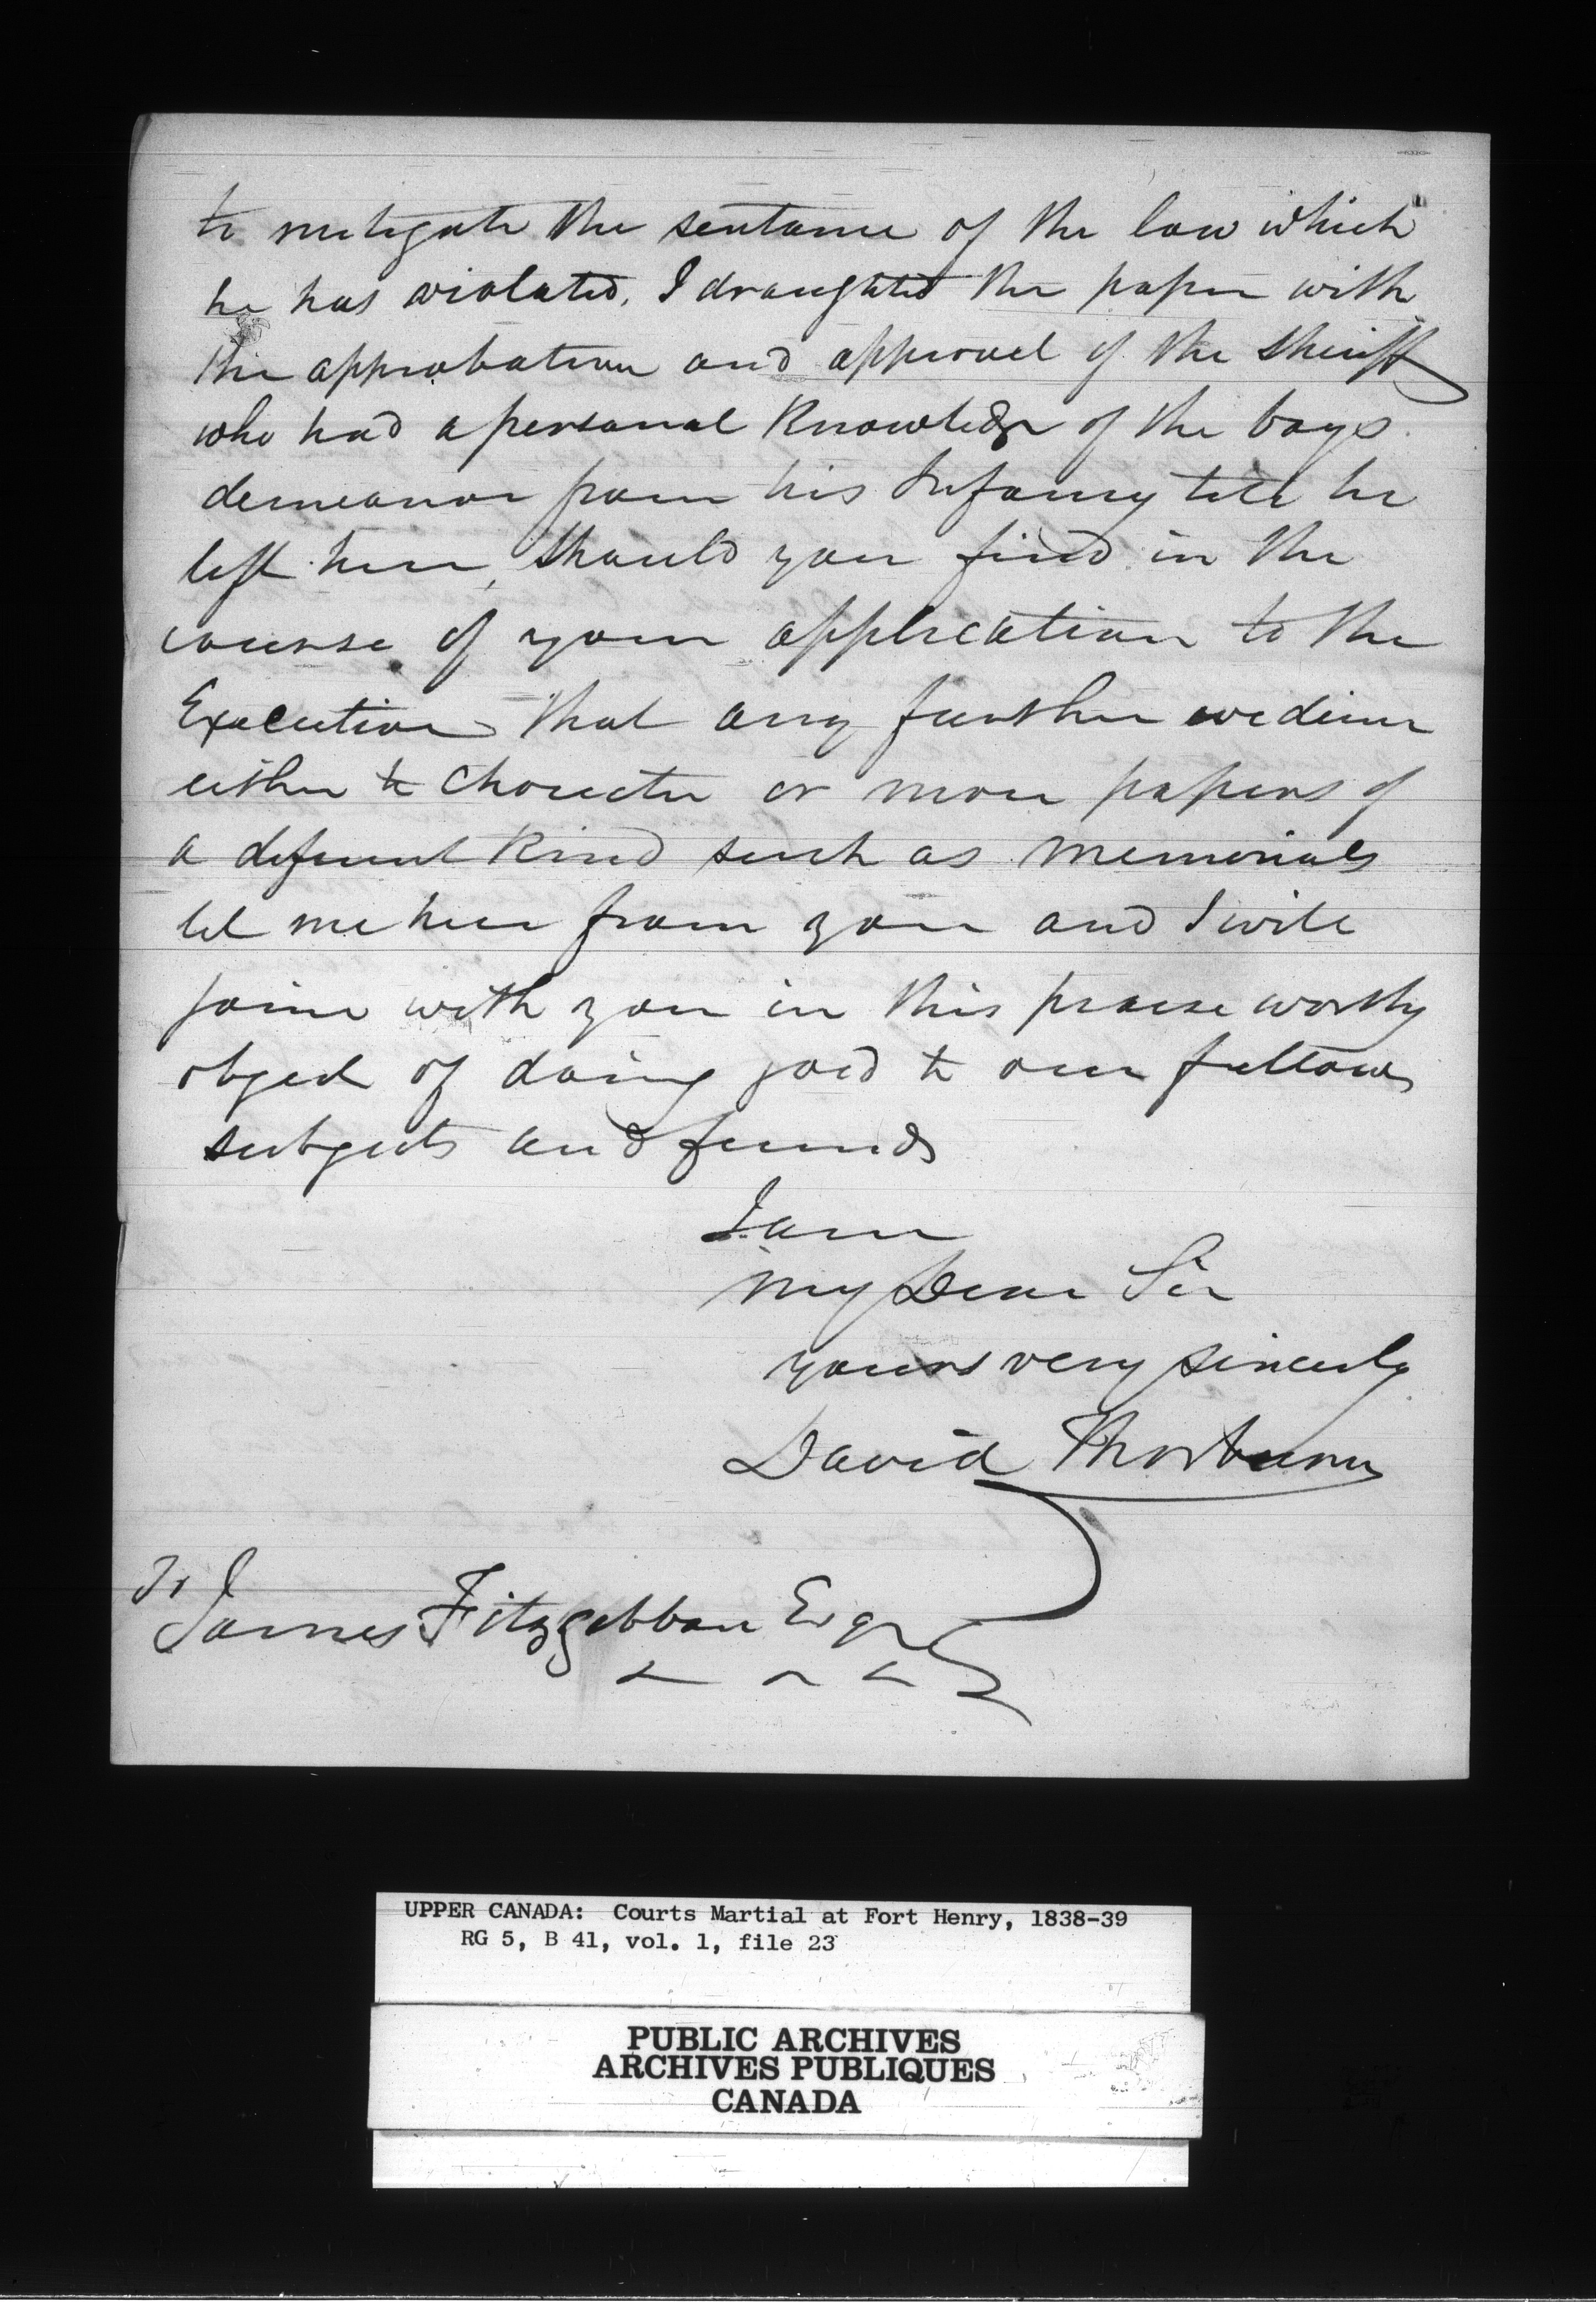 to mitigate the sentance of the law which
he has violated. I draughted the paper with
the approbation and approvel of the Sheriff
who had a personal Knowledge of the boys
demeanor from his Infancy till he
left here, should you find in the
course of your application to the
Executive that any further evedince
either to Charecter or more papers of
a deferent Kind such as memorials
let me hear from you and I will
joine with you in this praese worthy
object of doing good to our fellow
subjects and friends
I am
My Dear Sir
yours very sincerly
David Thorburn
To
James Fitzgibbon Esqr
UPPER CANADA: Courts Martial at Fort Henry, 1838-39
RG 5, B 41, vol. 1, file 23
PUBLIC ARCHIVES
ARCHIVES PUBLIQUES
CANADA